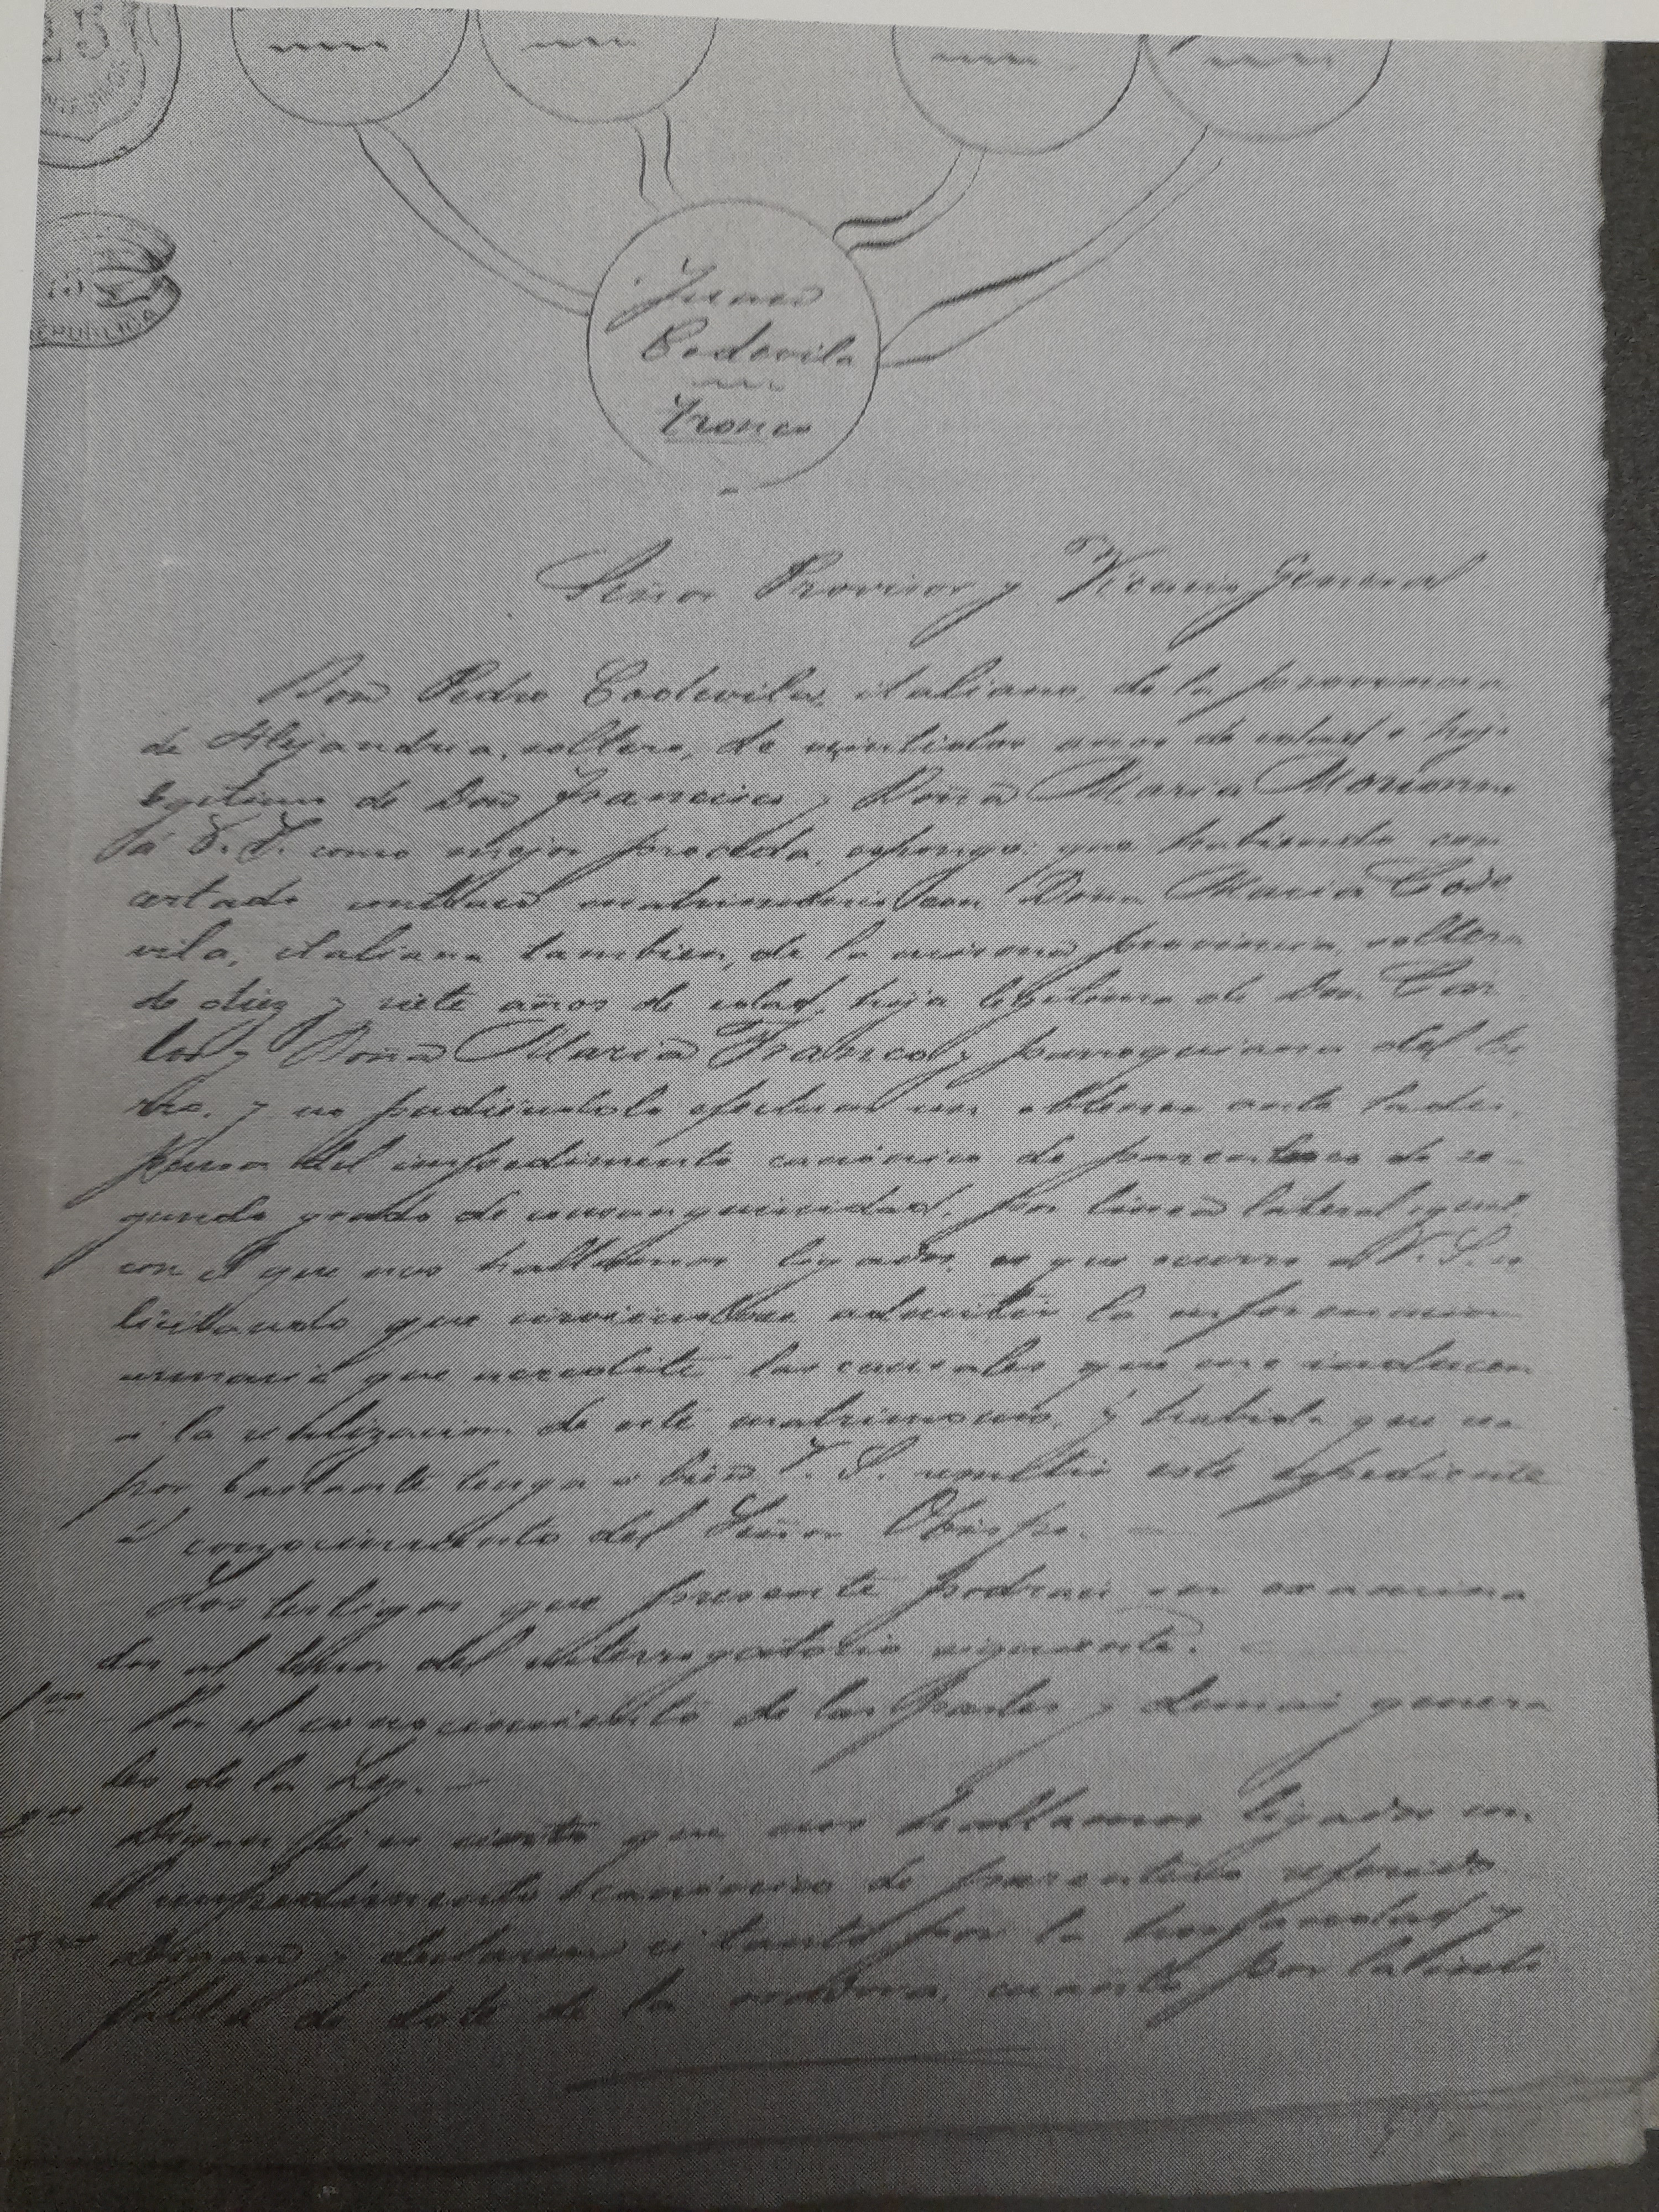 REPUBLICA
Juan
Codevila
Tronco
Señor Provisor y Vicario General
Don Pedro Codevila, italiano, de la provincia
de Alejandria, soltero, de veintidos años de edad é hijo
legitimo de Don Francisco y Doña Maria
á V. S. como mejor proceda, espongo: que habiendo con
certado contraer matrimonio con Doña Maria Code
vila, italiana tambien, de la misma provincia, soltera
de diez y siete años de edad, hija legitima de Don Car
los y Doña Maria Franco y parroquiana del
y no pudiendolo efectuar sin obtener antes la dis
pensa del impedimento canónico de parentesco de se
gundo grado de consanguinidad, por linea lateral igual,
con el que nos hallamos ligados, es que ocurro á V. S. so
licitando que se admitir la informacion
sumaria que acredite las causales que me inducen
á la realizacion de este matrimonio, y habida que sea
por bastante tenga á bien V. S. remitir este espediente
á conocimiento del Señor Obispo. —
Los testigos que presente podran ser examina
dos al tenor del interrogatorio siguiente.
1ro Por el conocimiento de las partes y demas genera
les de la Ley. —
2do Digan si es cierto que nos hallamos ligados con
el impedimento canonico de parentesco referido
3ro Digan y declaren si tanto por la horfandad y
falta de dote de la oradora, cuanto por